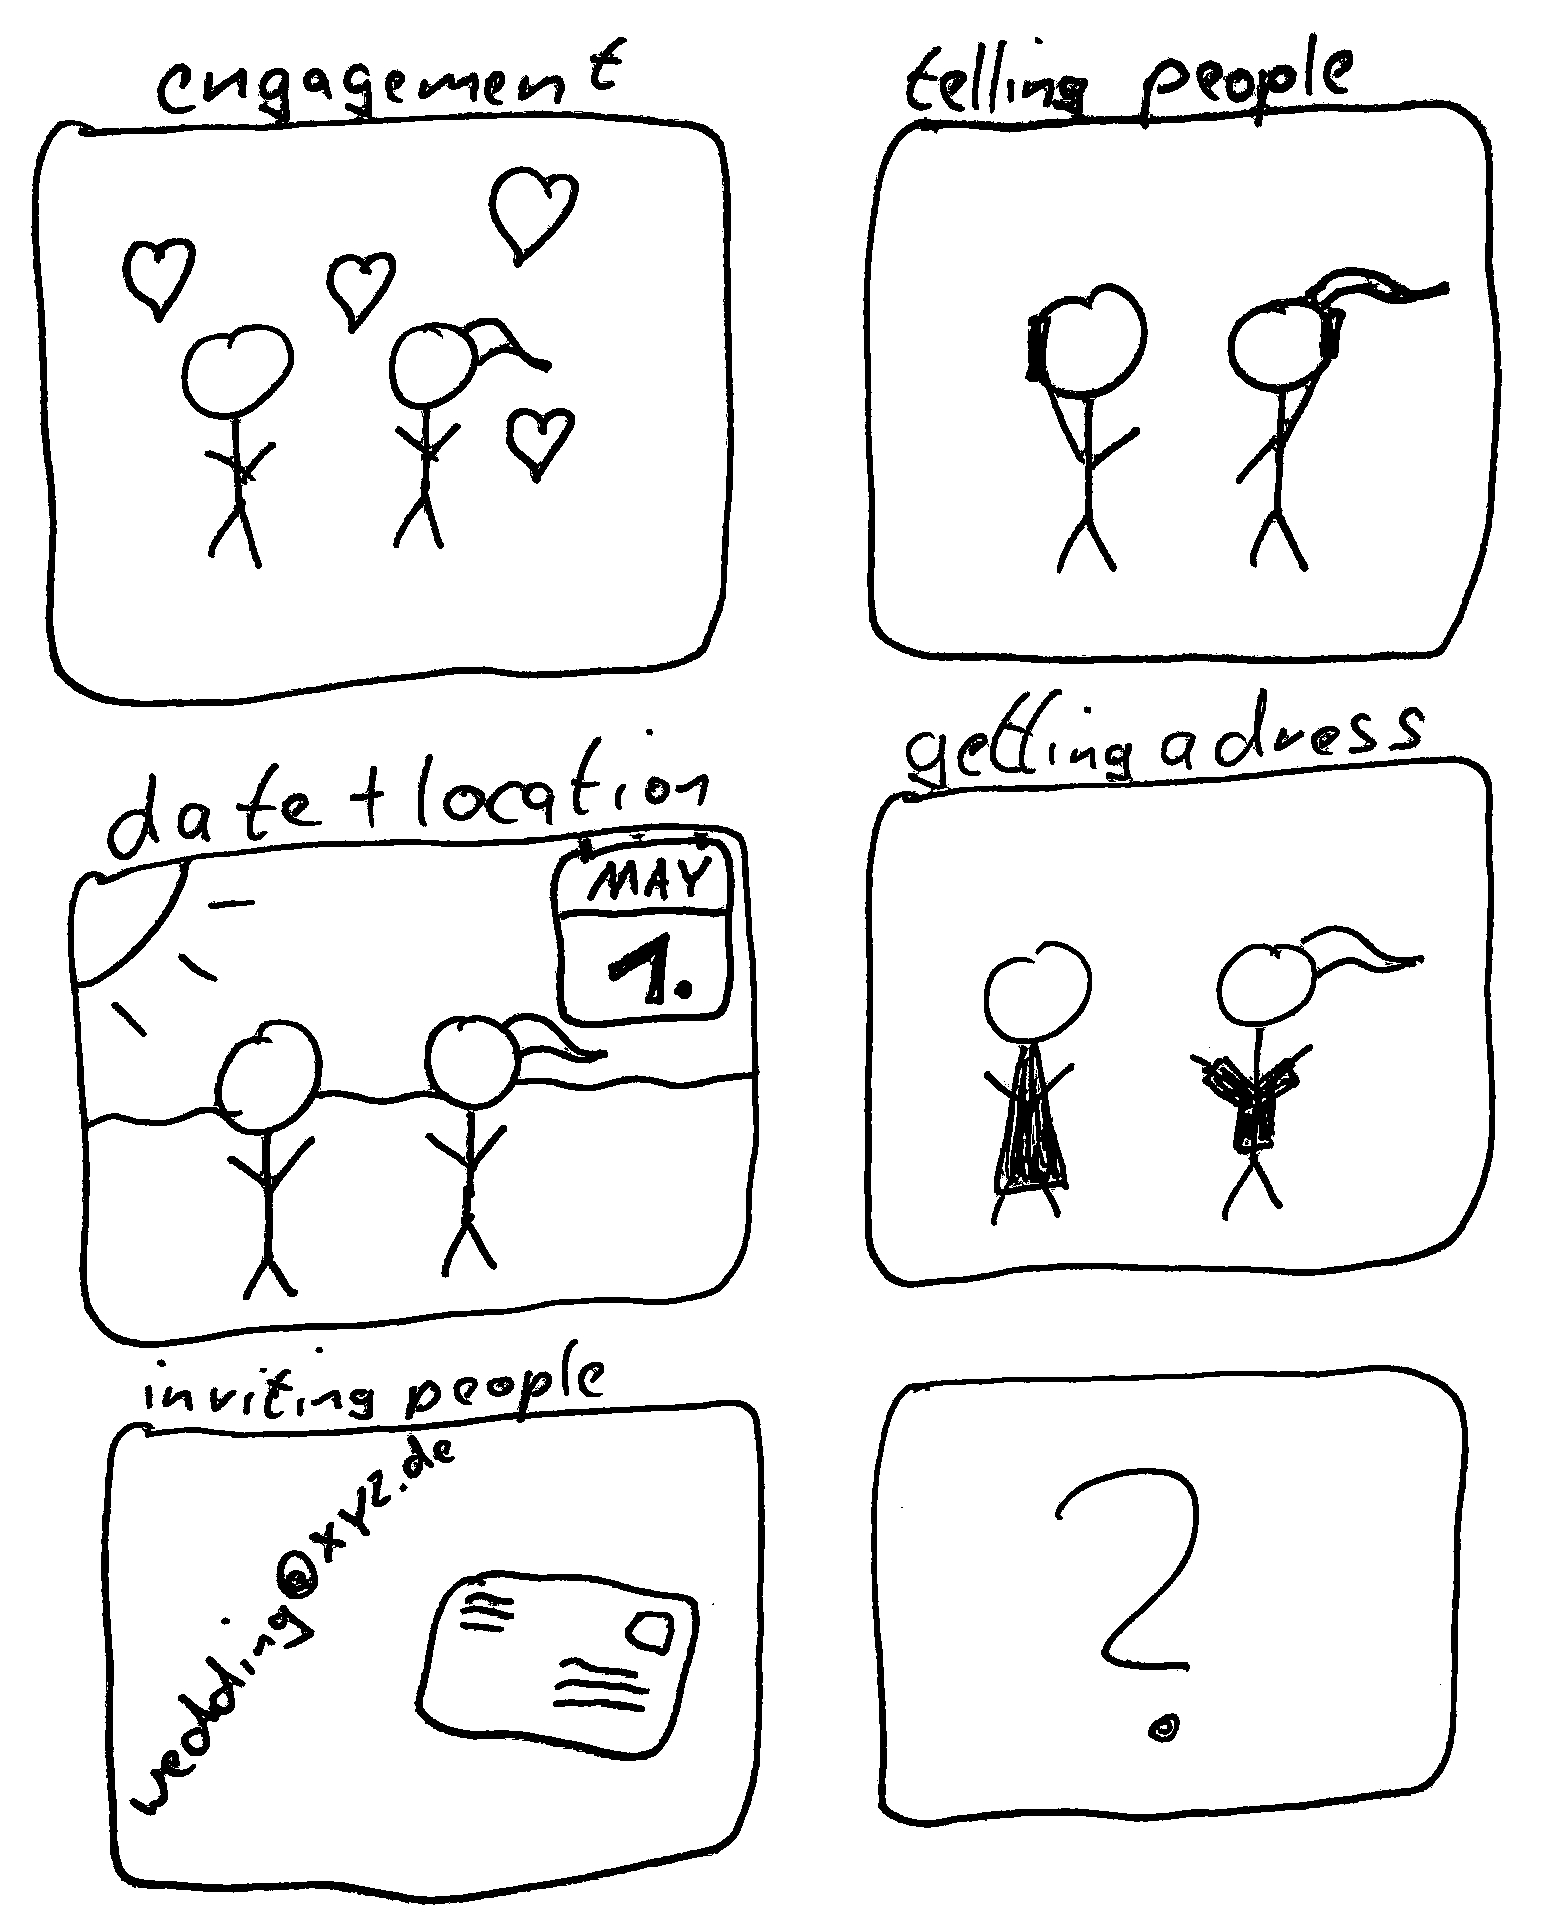 engagement
telling people
date + location
MAY
1.
getting adress
inviting people
wedding@xyz.de
?